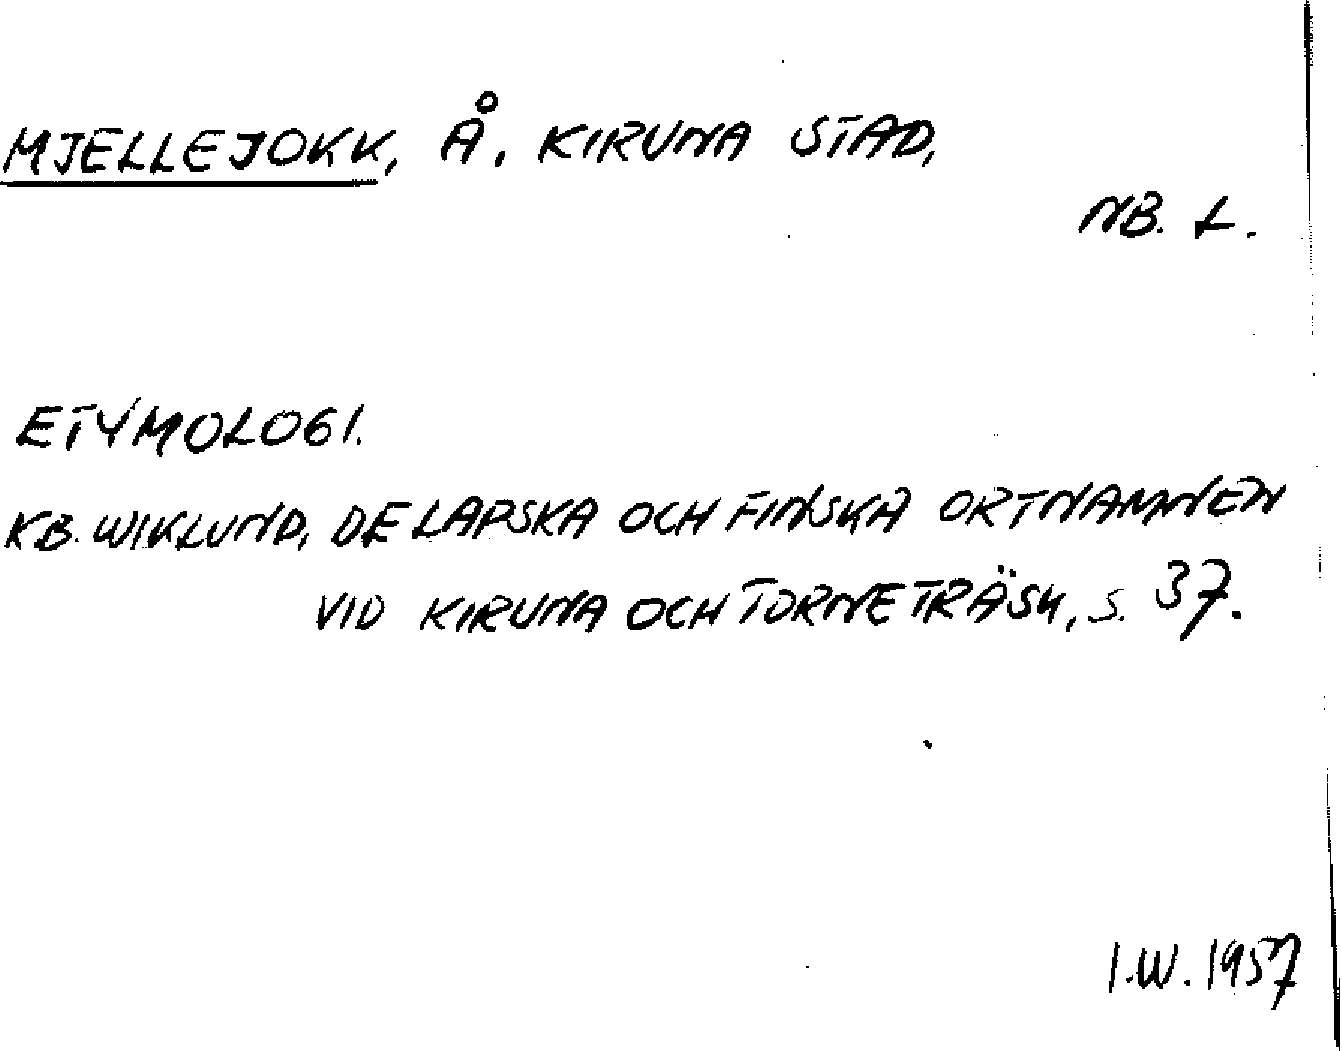 MJELLEJOKK, Å, KIRUNA STAD,
NB. L.
ETYMOLOGI.
KB. WIKLUND, DE LAPSKA OCH FINSKA ORTNAMNEN
VID KIRUNA OCH TORNETRÄSK, S. 37.
I.W. 1957